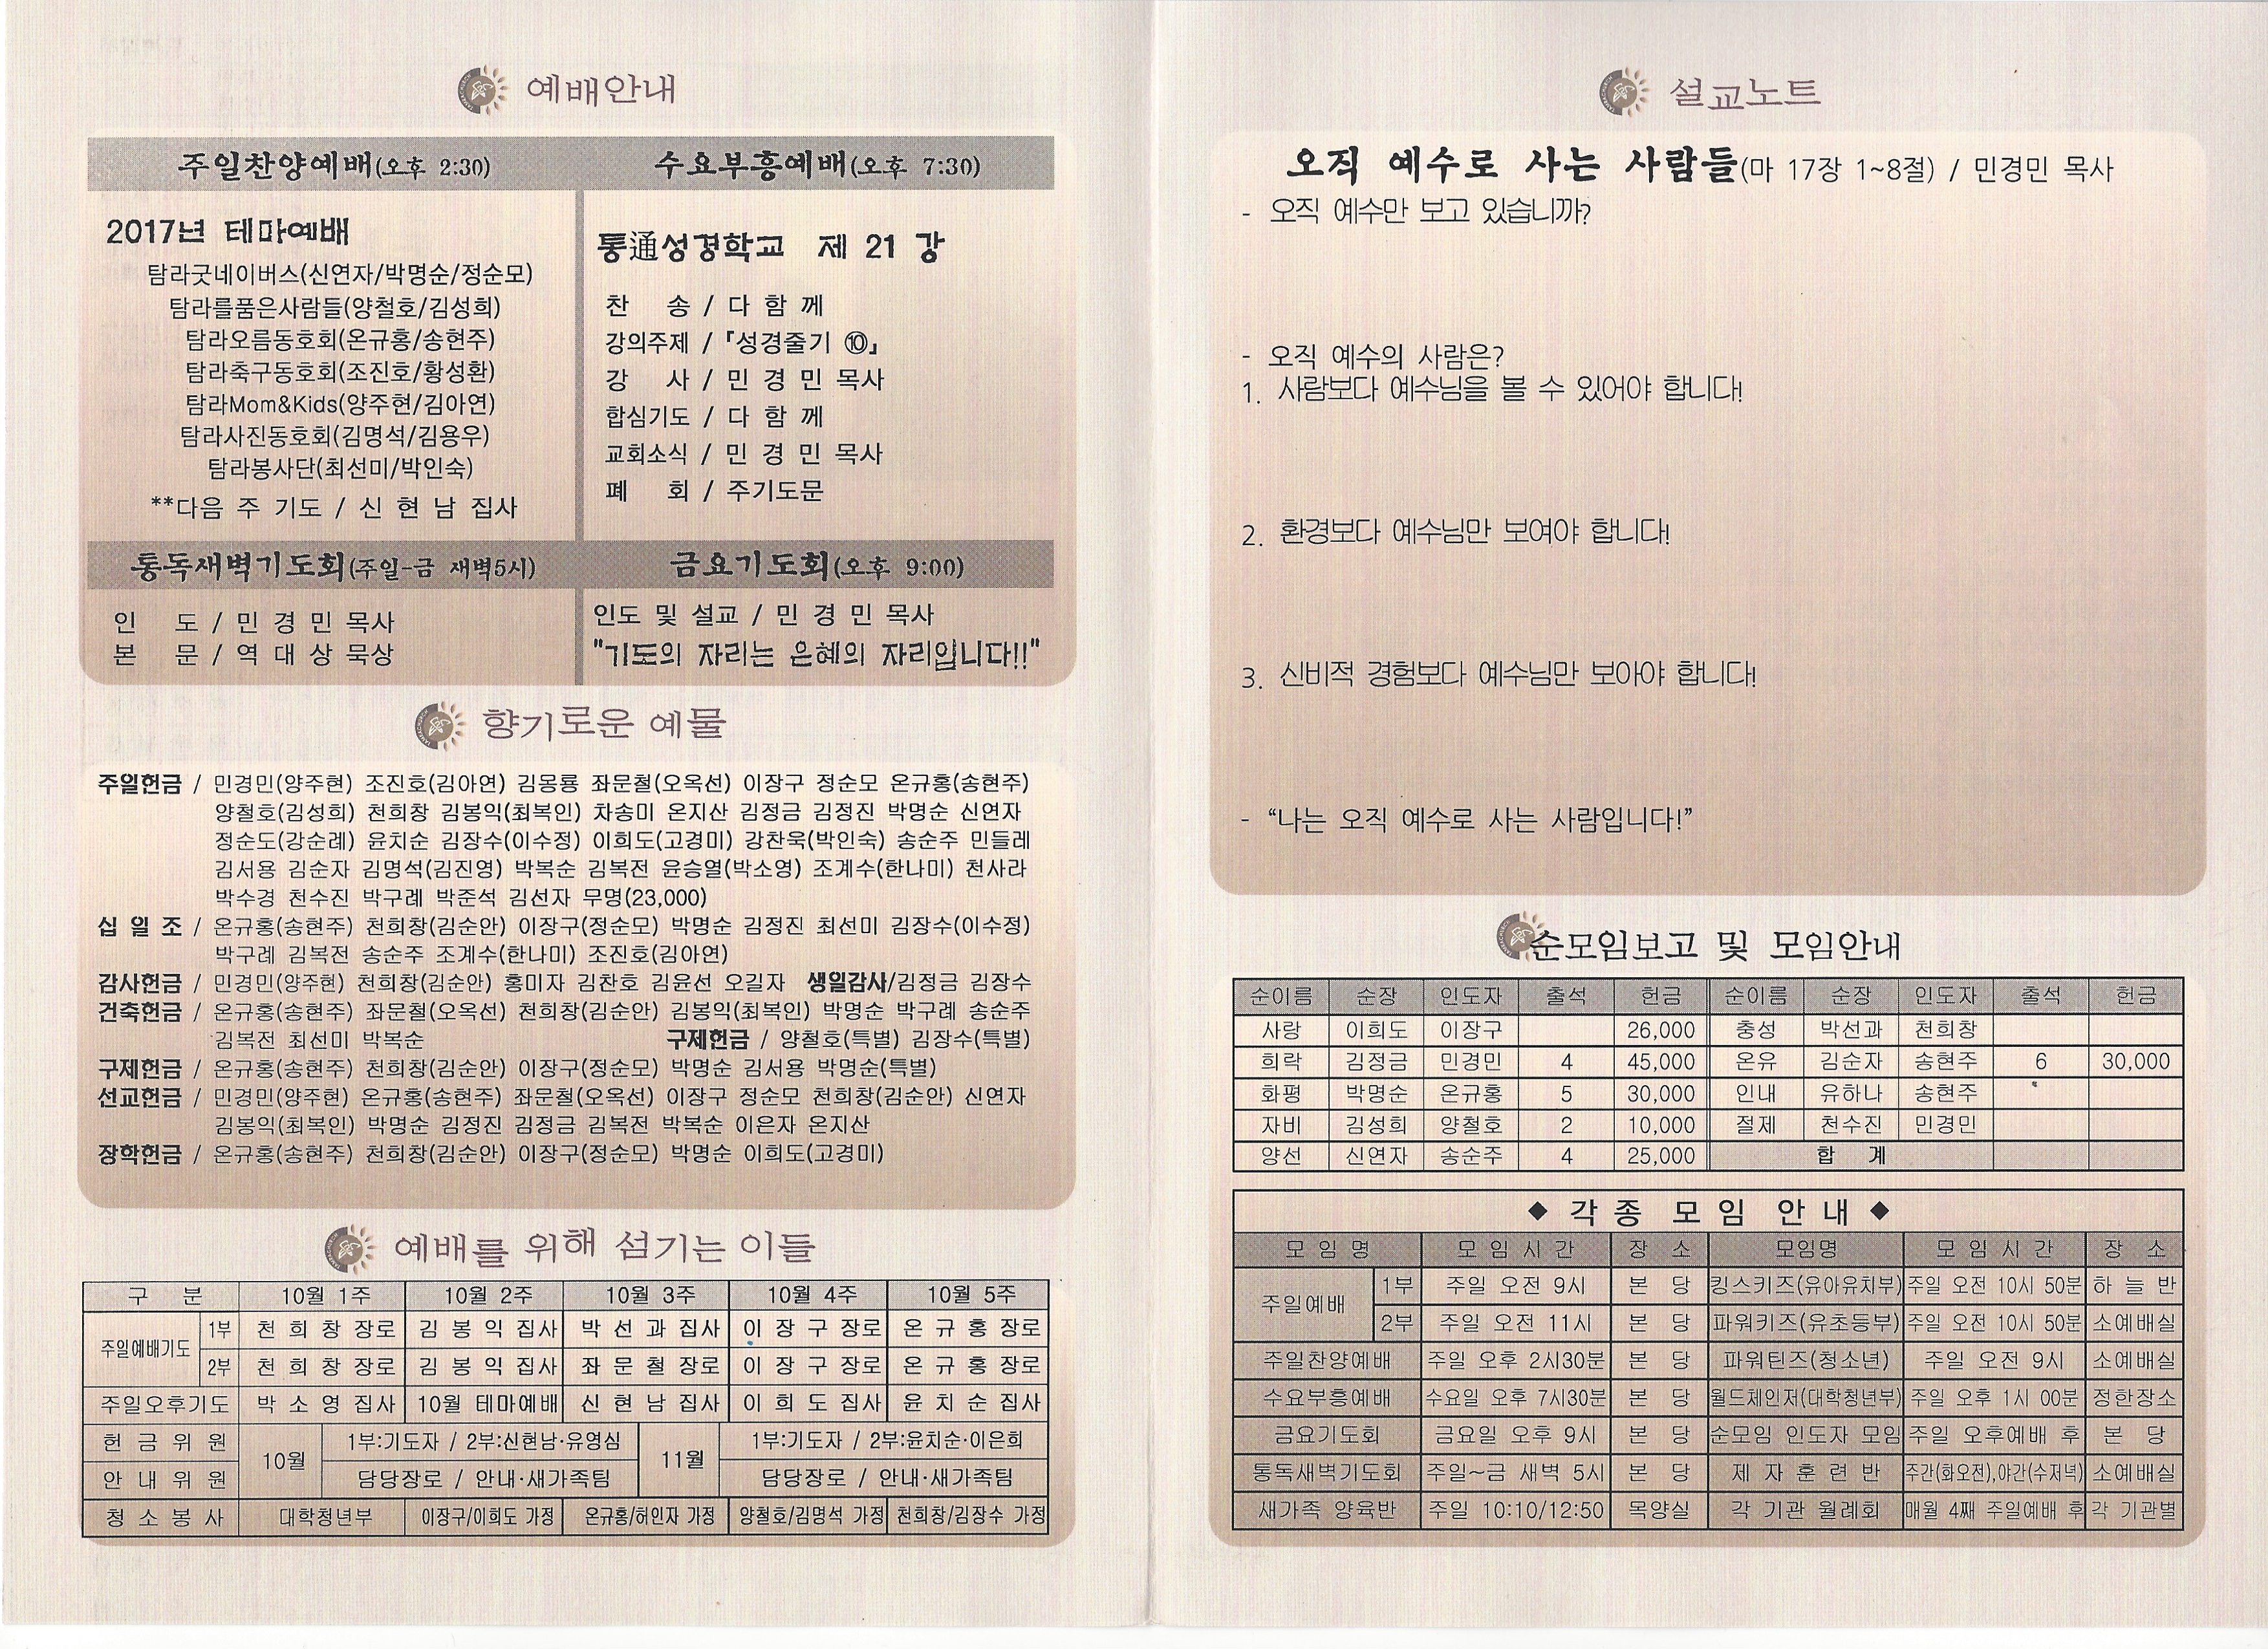 예배안내
주일찬양예배(오후 2:30)
2017년 테마예배
탐라굿네이버스(신연자/박명순/정순모)
탐라를품은사람들(양철호/김성희)
탐라오름동호회(온규홍/송현주)
탐라축구동호회(조진호/황성환)
탐라Mom&Kids(양주현/김아연)
탐라사진동호회(김명석/김용우)
탐라봉사단(최선미/박인숙)
**다음 주 기도 / 신 현 남 집사
수요부흥예배(오후 7:30)
통通성경학교 제 21 강
찬 송 / 다 함 께
강의주제 / 『성경줄기 ⑩』
강 사 / 민 경 민 목사
합심기도 / 다 함 께
교회소식 / 민 경 민 목사
폐 회 / 주기도문
통독새벽기도회(주일-금 새벽5시)
인 도 / 민 경 민 목사
본 문 / 역 대 상 묵상
금요기도회(오후 9:00)
인도 및 설교 / 민 경 민 목사
"기도의 자리는 은혜의 자리입니다!!"
향기로운 예물
주일헌금 / 민경민(양주현) 조진호(김아연) 김몽룡 좌문철(오옥선) 이장구 정순모 온규홍(송현주)
양철호(김성희) 천희창 김봉익(최복인) 차송미 온지산 김정금 김정진 박명순 신연자
정순도(강순례) 윤치순 김장수(이수정) 이희도(고경미) 강찬욱(박인숙) 송순주 민들레
김서용 김순자 김명석(김진영) 박복순 김복전 윤승열(박소영) 조계수(한나미) 천사라
박수경 천수진 박구례 박준석 김선자 무명(23,000)
십 일 조 / 온규홍(송현주) 천희창(김순안) 이장구(정순모) 박명순 김정진 최선미 김장수(이수정)
박구례 김복전 송순주 조계수(한나미) 조진호(김아연)
감사헌금 / 민경민(양주현) 천희창(김순안) 홍미자 김찬호 김윤선 오길자 생일감사/김정금 김장수
건축헌금 / 온규홍(송현주) 좌문철(오옥선) 천희창(김순안) 김봉익(최복인) 박명순 박구례 송순주
김복전 최선미 박복순 구제헌금 / 양철호(특별) 김장수(특별)
구제헌금 / 온규홍(송현주) 천희창(김순안) 이장구(정순모) 박명순 김서용 박명순(특별)
선교헌금 / 민경민(양주현) 온규홍(송현주) 좌문철(오옥선) 이장구 정순모 천희창(김순안) 신연자
김봉익(최복인) 박명순 김정진 김정금 김복전 박복순 이은자 온지산
장학헌금 / 온규홍(송현주) 천희창(김순안) 이장구(정순모) 박명순 이희도(고경미)
예배를 위해 섬기는 이들
구 분 10월 1주 10월 2주 10월 3주 10월 4주 10월 5주
주일예배기도 1부 천 희 창 장로 김 봉 익 집사 박 선 과 집사 이 장 구 장로 온 규 홍 장로
2부 천 희 창 장로 김 봉 익 집사 좌 문 철 장로 이 장 구 장로 온 규 홍 장로
주일오후기도 박 소 영 집사 10월 테마예배 신 현 남 집사 이 희 도 집사 윤 치 순 집사
헌 금 위 원 10월 1부:기도자 / 2부:신현남·유영심 11월 1부:기도자 / 2부:윤치순·이은희
안 내 위 원 담당장로 / 안내·새가족팀 담당장로 / 안내·새가족팀
청 소 봉 사 대학청년부 이장구/이희도 가정 온규홍/허인자 가정 양철호/김명석 가정 천희창/김장수 가정
설교노트
오직 예수로 사는 사람들(마 17장 1~8절) / 민경민 목사
- 오직 예수만 보고 있습니까?
- 오직 예수의 사람은?
1. 사람보다 예수님을 볼 수 있어야 합니다!
2. 환경보다 예수님만 보여야 합니다!
3. 신비적 경험보다 예수님만 보아야 합니다!
- “나는 오직 예수로 사는 사람입니다!”
순모임보고 및 모임안내
순이름 순장 인도자 출석 헌금 순이름 순장 인도자 출석 헌금
사랑 이희도 이장구 26,000 충성 박선과 천희창
희락 김정금 민경민 4 45,000 온유 김순자 송현주 6 30,000
화평 박명순 온규홍 5 30,000 인내 유하나 송현주
자비 김성희 양철호 2 10,000 절제 천수진 민경민
양선 신연자 송순주 4 25,000 합 계
◆ 각 종 모 임 안 내 ◆
모 임 명 모 임 시 간 장 소 모임명 모 임 시 간 장 소
주일예배 1부 주일 오전 9시 본 당 킹스키즈(유아유치부) 주일 오전 10시 50분 하 늘 반
2부 주일 오전 11시 본 당 파워키즈(유초등부) 주일 오전 10시 50분 소예배실
주일찬양예배 주일 오후 2시30분 본 당 파워틴즈(청소년) 주일 오전 9시 소예배실
수요부흥예배 수요일 오후 7시30분 본 당 월드체인저(대학청년부) 주일 오후 1시 00분 정한장소
금요기도회 금요일 오후 9시 본 당 순모임 인도자 모임 주일 오후예배 후 본 당
통독새벽기도회 주일~금 새벽 5시 본 당 제 자 훈 련 반 주간(화오전),야간(수저녁) 소예배실
새가족 양육반 주일 10:10/12:50 목양실 각 기관 월례회 매월 4째 주일예배 후 각 기관별